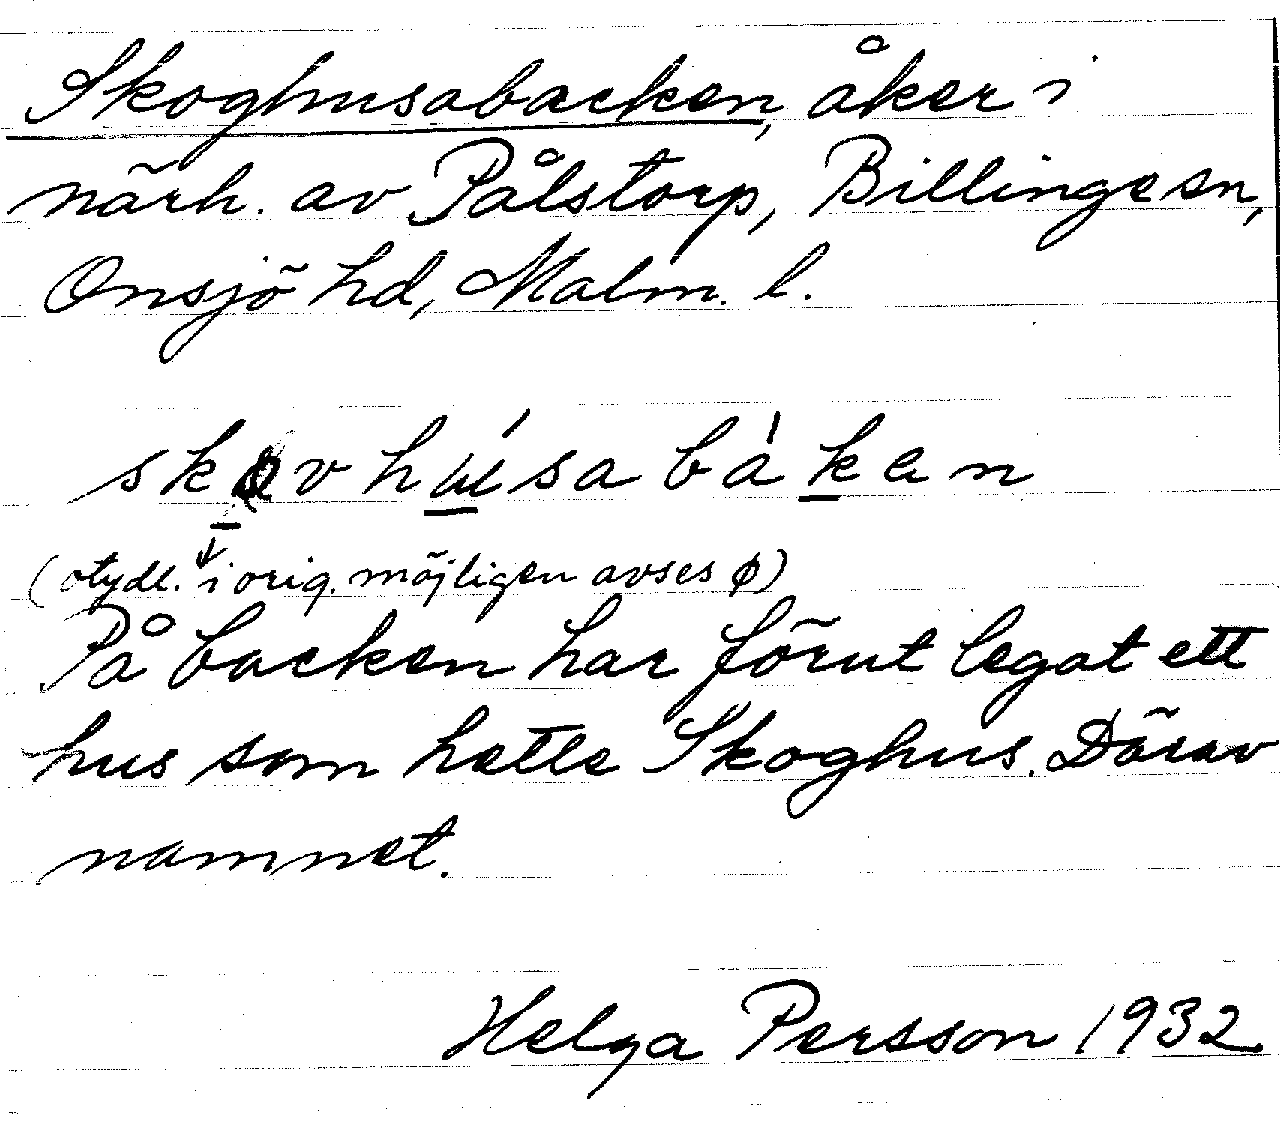 Skoghusabacken, åker i
närh. av Pålstorp, Billinge sn,
Onsjö hd, Malm. l.
skøvhúsabákan
(otydl. i orig. möjligen avses ø)
På backen har förut legat ett
hus som hette Skoghus. Därav
namnet.
Helga Persson 1932